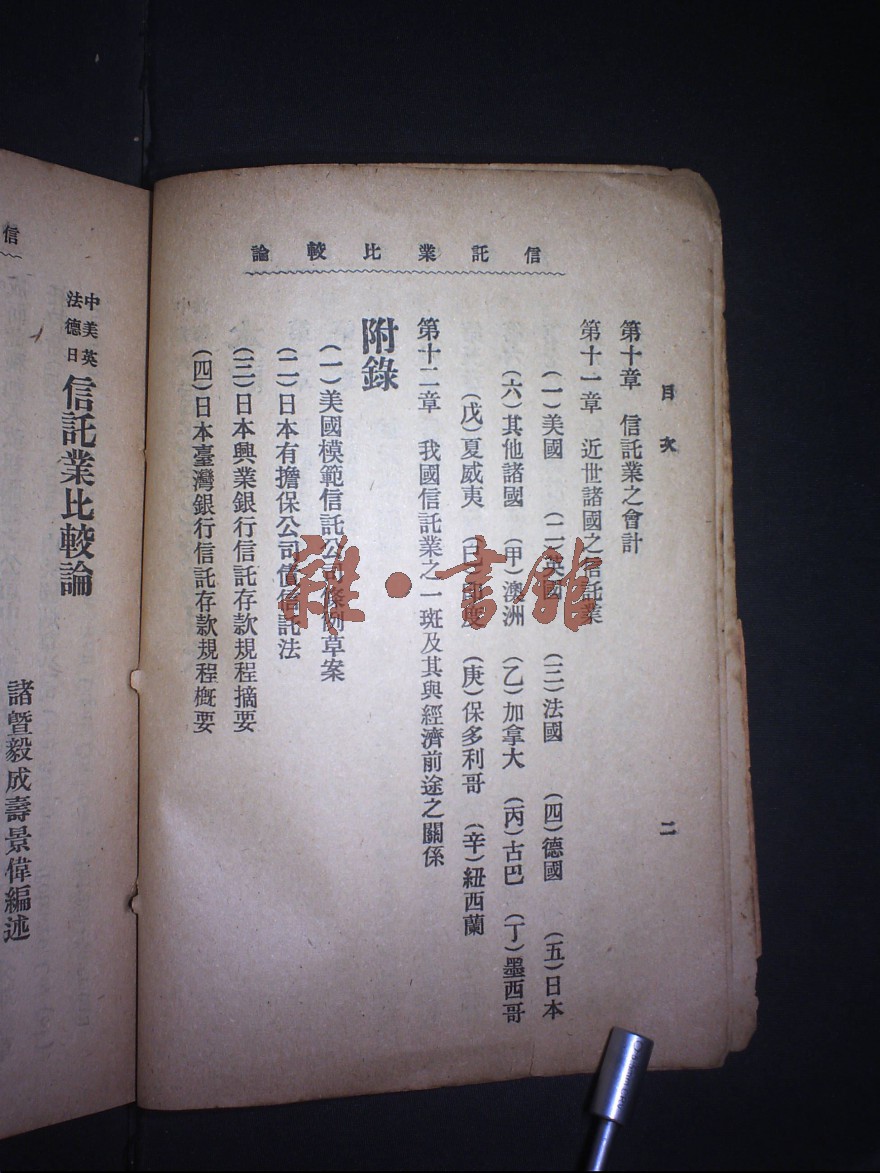 信託業比較論
目次
二
第十章　信託業之會計
第十一章　近世諸國之信託業
(一)美國　(二)英國　(三)法國　(四)德國　(五)日本
(六)其他諸國　(甲)澳洲　(乙)加拿大　(丙)古巴　(丁)墨西哥
(戊)夏威夷　(己)印度　(庚)保多利哥　(辛)紐西蘭
第十二章　我國信託業之一斑及其與經濟前途之關係
附錄
(一)美國模範信託公司條例草案
(二)日本有擔保公司債信託法
(三)日本興業銀行信託存款規程摘要
(四)日本臺灣銀行信託存款規程概要
雜·書館
信
中美英
法德日
信託業比較論
諸暨毅成壽景偉編述